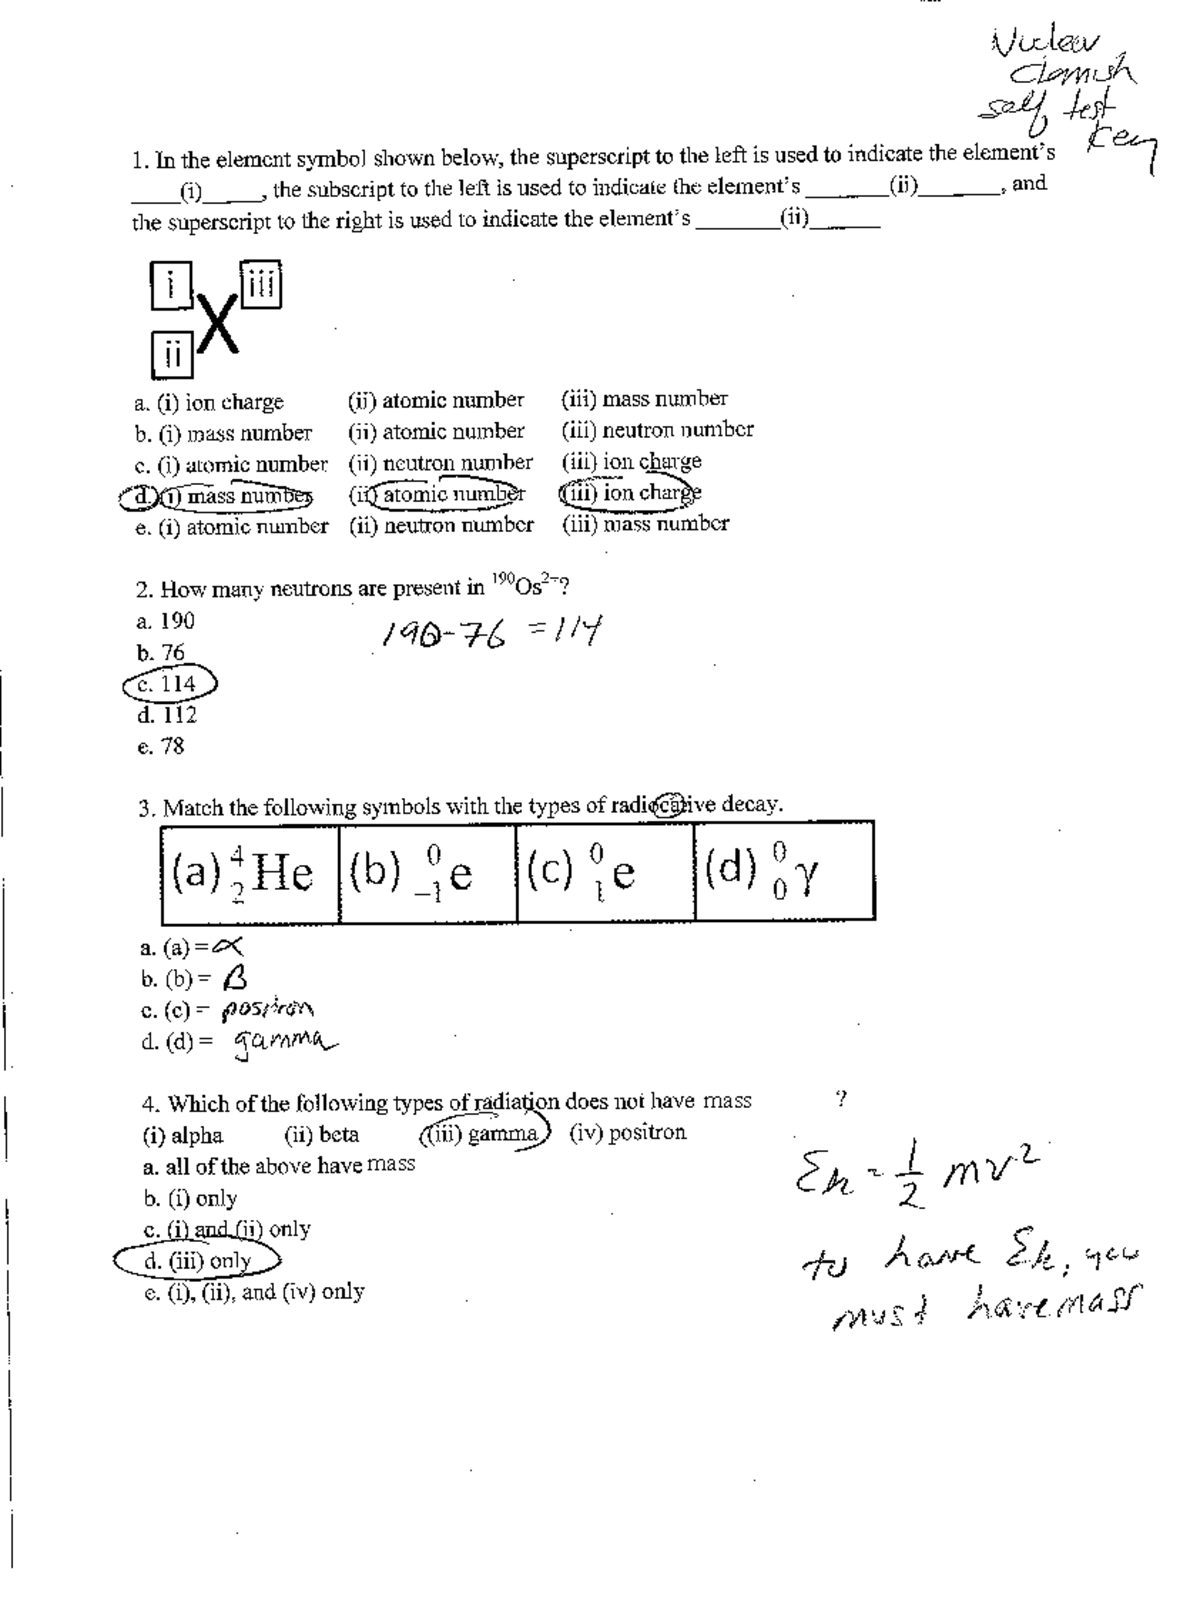 Nuclear
Chemistry
self test
key
1. In the element symbol shown below, the superscript to the left is used to indicate the element's
____(i)_____, the subscript to the left is used to indicate the element's _______(ii)_______, and
the superscript to the right is used to indicate the element's _______(ii)______
i
iii
X
ii
a. (i) ion charge (ii) atomic number (iii) mass number
b. (i) mass number (ii) atomic number (iii) neutron number
c. (i) atomic number (ii) neutron number (iii) ion charge
d. (i) mass number (ii) atomic number (iii) ion charge
e. (i) atomic number (ii) neutron number (iii) mass number
2. How many neutrons are present in ¹⁹⁰Os²⁻?
a. 190
190-76 = 114
b. 76
c. 114
d. 112
e. 78
3. Match the following symbols with the types of radiocative decay.
(a) ⁴₂He (b) ⁰₋₁e (c) ⁰₁e (d) ⁰₀γ
a. (a) = α
b. (b) = β
c. (c) = positron
d. (d) = gamma
4. Which of the following types of radiation does not have mass ?
(i) alpha (ii) beta (iii) gamma (iv) positron
a. all of the above have mass
b. (i) only
c. (i) and (ii) only
d. (iii) only
e. (i), (ii), and (iv) only
Ek = 1/2 mv²
to have Ek, you
must have mass